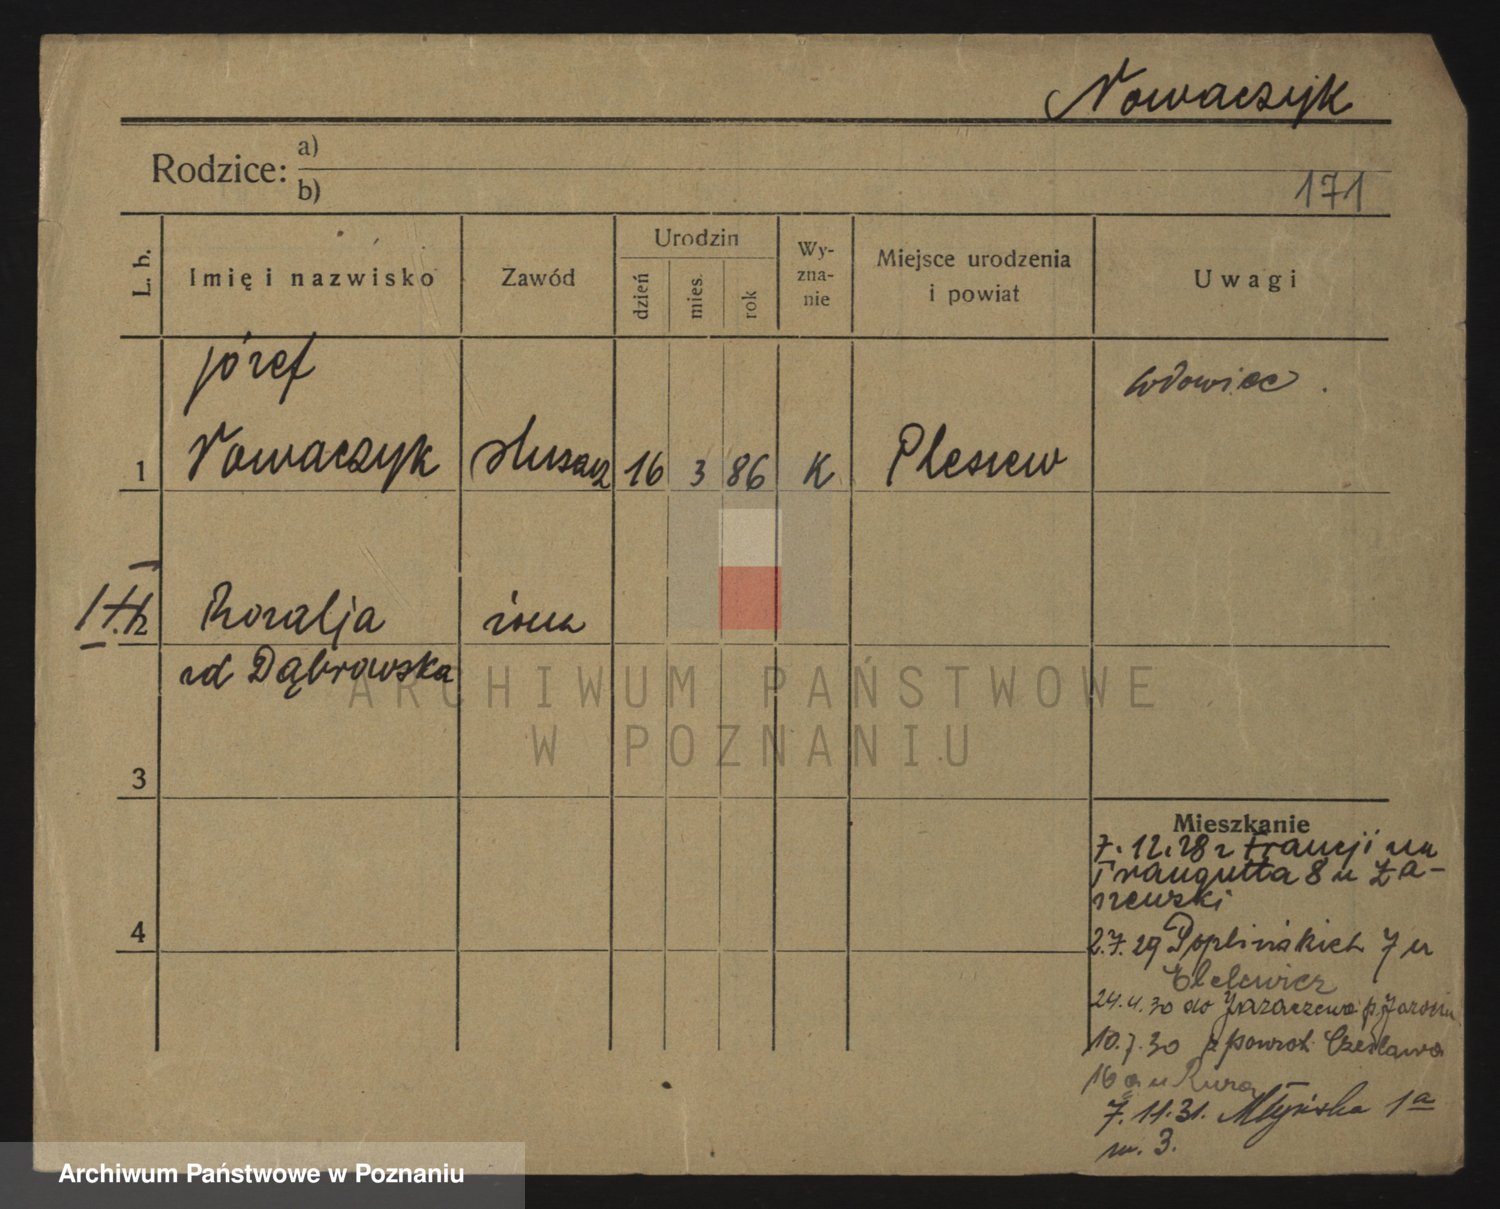 Nowaczyk
Rodzice: a)
b)
171
L. b.
Imię i nazwisko
Zawód
Urodzin
dzień
mies.
rok
Wy-
zna-
nie
Miejsce urodzenia
i powiat
Uwagi
Józef
wdowiec.
1 Nowaczyk ślusarz 16 3 86 K Pleszew
2 Rozalja żona
zd Dąbrowska
ARCHIWUM PAŃSTWOWE
W POZNANIU
3
Mieszkanie
7.12.28 z Francji na
Traugutta 8 u
4
2.7.29 7 u
24.4.30 do Jaraczewa p/
10.7.30 z powrot. Czesława
16 a u
7.11.31. Młyńska 1a
m. 3.
Archiwum Państwowe w Poznaniu